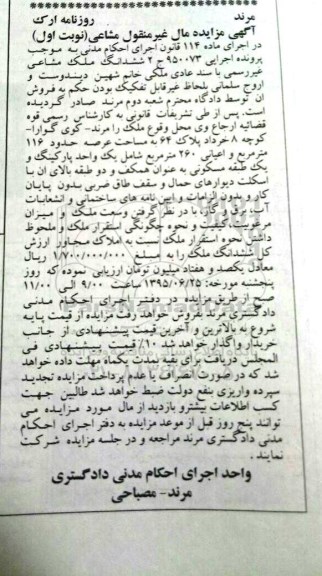 مرند روزنامه ارک
آگهی مزایده مال غیرمنقول مشاعی(نوبت اول)
در اجرای ماده ۱۱۴ قانون اجرای احکام مدنی به موجب
پرونده اجرایی ۹۵۰۰۷۳ ج ۲ ششدانگ ملک مشاعی
غیررسمی با سند عادی ملکی خانم شهین دیندوست و
اروج سلمانی بلحاظ غیرقابل تفکیک بودن حکم به فروش
آن توسط دادگاه محترم شعبه دوم مرند صادر گردیده
است. پس از طی تشریفات قانونی به کارشناس رسمی قوه
قضائیه ارجاع وی محل وقوع ملک را مرند- کوی گوارا-
کوچه ۸ خرداد پلاک ۶۴ به مساحت عرصه حدود ۱۱۶
مترمربع و اعیانی ۲۶۰ مترمربع شامل یک واحد پارکینگ و
یک طبقه مسکونی به عنوان همکف و دو طبقه بالای آن با
اسکلت دیوارهای حمال و سقف طاق ضربی بدون پایان
کار و بدون الزامات و آیین نامه های ساختمانی و انشعابات
آب، برق و گاز، با در نظر گرفتن وسعت ملک و میزان
مرغوبیت،کیفیت و نحوه چگونگی استقرار ملک و ملحوظ
داشتن نحوه استقرار ملک نسبت به املاک مجاور ارزش
کل ششدانگ ملک را به مبلغ ۱/۷۰۰/۰۰۰/۰۰۰ ریال
معادل یکصد و هفتاد میلیون تومان ارزیابی نموده که روز
پنجشنبه مورخه: ۱۳۹۵/۰۶/۲۵ ساعت ۹/۰۰ الی ۱۱/۰۰
صبح از طریق مزایده در دفتر اجرای احکام مدنی
دادگستری مرند بفروش خواهد رفت مزایده از قیمت پایه
شروع به بالاترین و آخرین قیمت پیشنهادی از جانب
خریدار واگذار خواهد شد ۱۰٪ قیمت پیشنهادی فی
المجلس دریافت برای بقیه مدت یکماه مهلت داده خواهد
شد که در صورت انصراف یا عدم پرداخت مزایده تجدید
سپرده واریزی بنفع دولت ضبط خواهد شد طالبین جهت
کسب اطلاعات بیشترو بازدید از مال مورد مزایده می
توانند پنج روز قبل از موعد مزایده به دفتر اجرای احکام
مدنی دادگستری مرند مراجعه و در جلسه مزایده شرکت
نمایند.
واحد اجرای احکام مدنی دادگستری
مرند- مصباحی